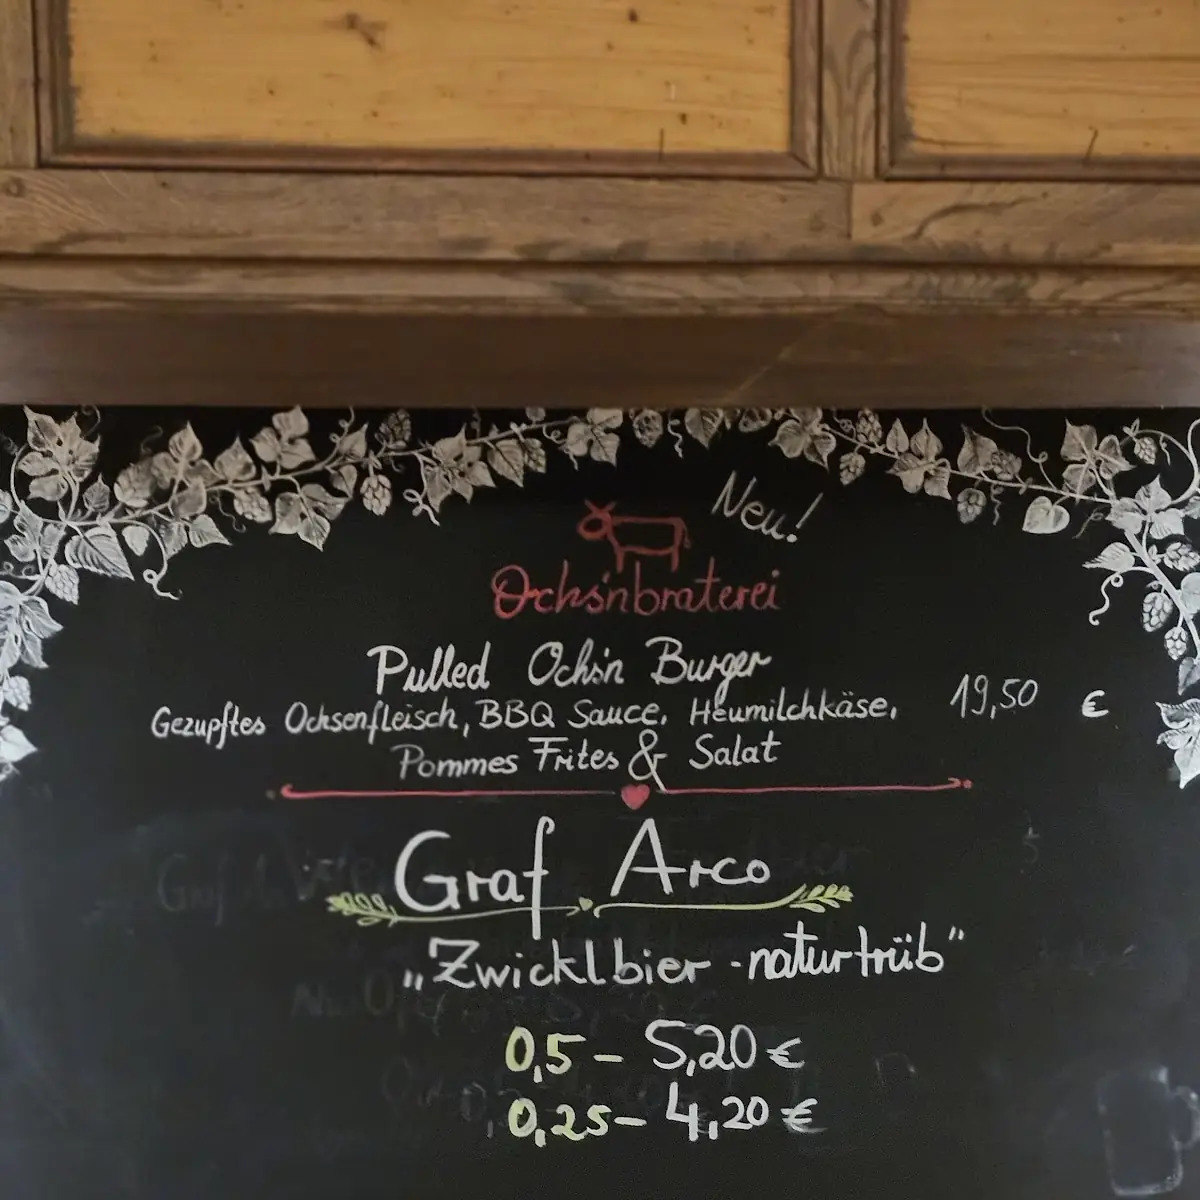 Neu!
Ochs'nbraterei
Pulled Ochs'n Burger
Gezupftes Ochsenfleisch, BBQ Sauce, Heumilchkäse, 19,50 €
Pommes Frites & Salat
Graf Arco
„Zwicklbier - naturtrüb"
0,5 – 5,20 €
0,25 – 4,20 €